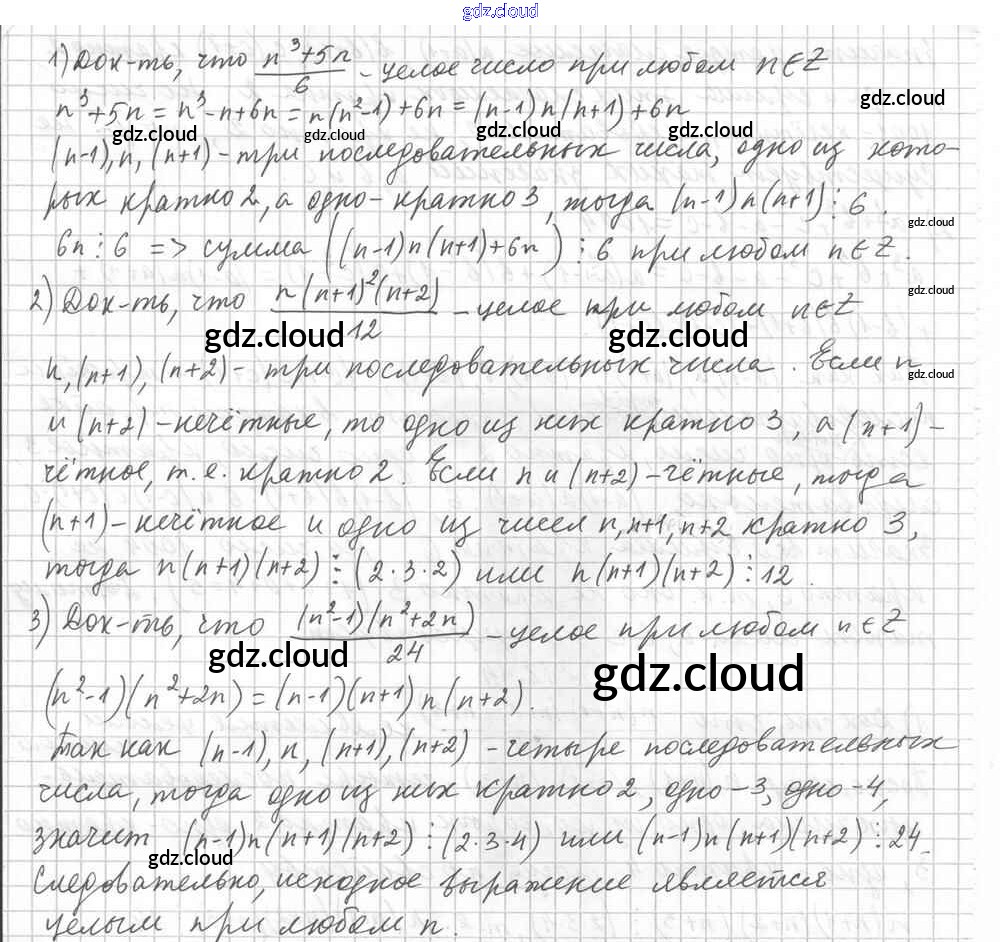 gdz.cloud
1) Док-ть, что (n³+5n)/6 - целое число при любом n∈Z
gdz.cloud
n³+5n = n³-n+6n = n(n²-1)+6n = (n-1)n(n+1)+6n
gdz.cloud gdz.cloud gdz.cloud gdz.cloud
(n-1), n, (n+1) - три последовательных числа, одно из кото-
рых кратно 2, а одно - кратно 3, тогда (n-1)n(n+1)⋮6.
gdz.cloud
6n⋮6 => сумма ((n-1)n(n+1)+6n)⋮6 при любом n∈Z.
gdz.cloud
2) Док-ть, что n(n+1)²(n+2)/12 - целое при любом n∈Z
gdz.cloud gdz.cloud
n, (n+1), (n+2) - три последовательных числа. Если n
gdz.cloud
и (n+2) - нечётные, то одно из них кратно 3, а (n+1) -
чётное, т.е. кратно 2. Если n и (n+2) - чётные, тогда
(n+1) - нечётное и одно из чисел n, n+1, n+2 кратно 3,
тогда n(n+1)(n+2)⋮(2·3·2) или n(n+1)(n+2)⋮12.
3) Док-ть, что (n²-1)(n²+2n)/24 - целое при любом n∈Z
gdz.cloud gdz.cloud
(n²-1)(n²+2n) = (n-1)(n+1)n(n+2).
Так как (n-1), n, (n+1), (n+2) - четыре последовательных
числа, тогда одно из них кратно 2, одно - 3, одно - 4,
значит (n-1)n(n+1)(n+2)⋮(2·3·4) или (n-1)n(n+1)(n+2)⋮24.
gdz.cloud
Следовательно, исходное выражение является
целым при любом n.